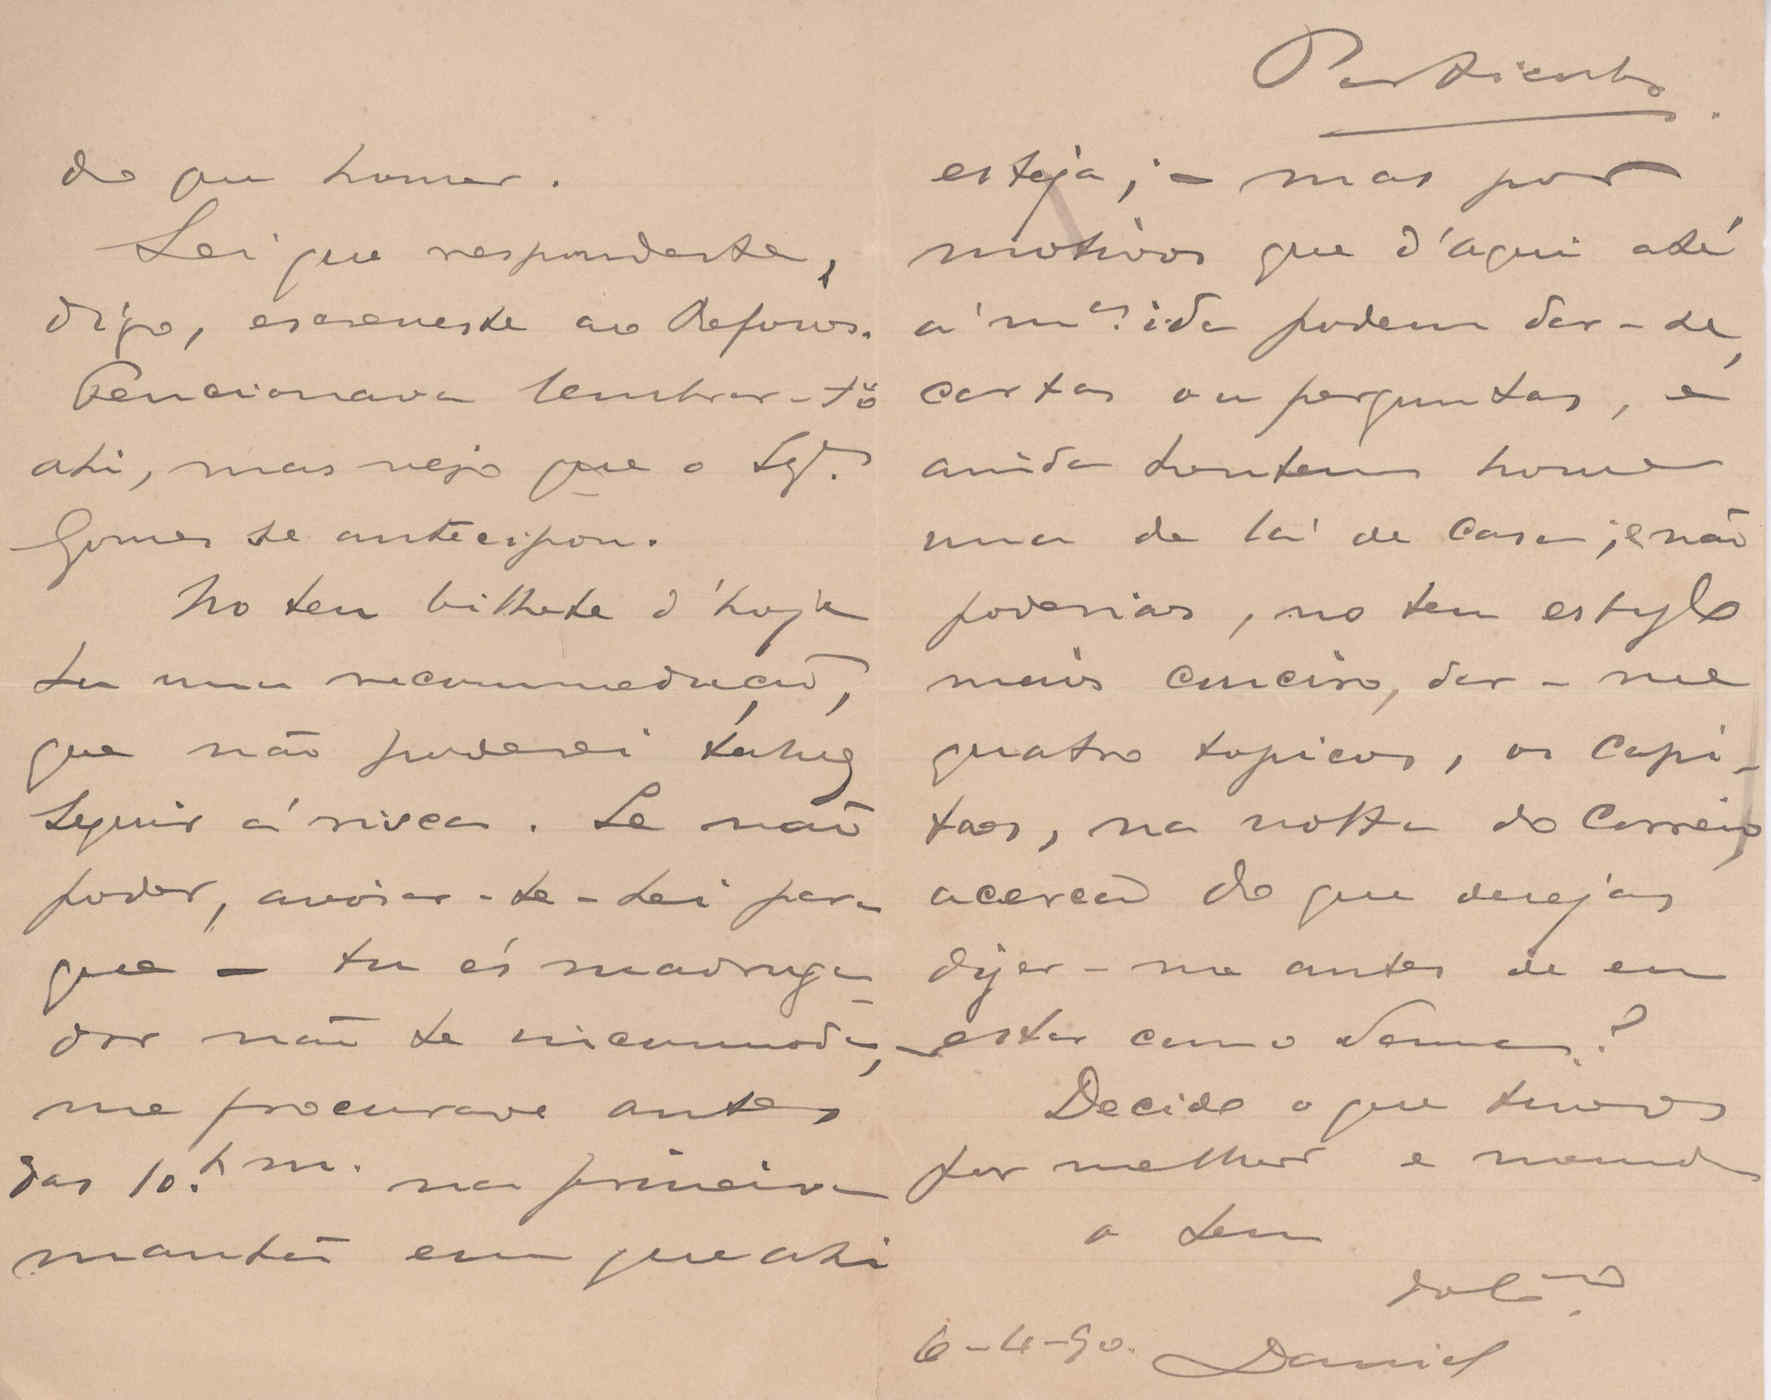 do que houver.
Sei que respondeste,
digo, escreveste ao Refoios.
Tencionava lembrar-t'o
ahi, mas vejo que o Sgd.º
Gomes se antecipou.
No teu bilhete d'hoje
ha uma recommedação,
que não poderei talvez
seguir á risca. Se não
poder, avisar-te-hei para
que – tu és madruga-
dor não te incommoda,
me procurare antes
das 10.h m. na primeira
manhã em que ahi
Particular.
esteja; – mas por
motivos que d'aqui até
á m.ª ida podem dar-se,
cartas ou perguntas, e
ainda hontem houve
uma de lá de casa; e não
poderias, no teu estylo
mais conciso, dar-me
quatro topicos, os capi-
taes, na volta do Correio,
acerca do que desejas
dizer-me antes de eu
estar com o Lemos?
Decide o que tiveres
por melhor e manda
o teu
Daniel
6-4-90.